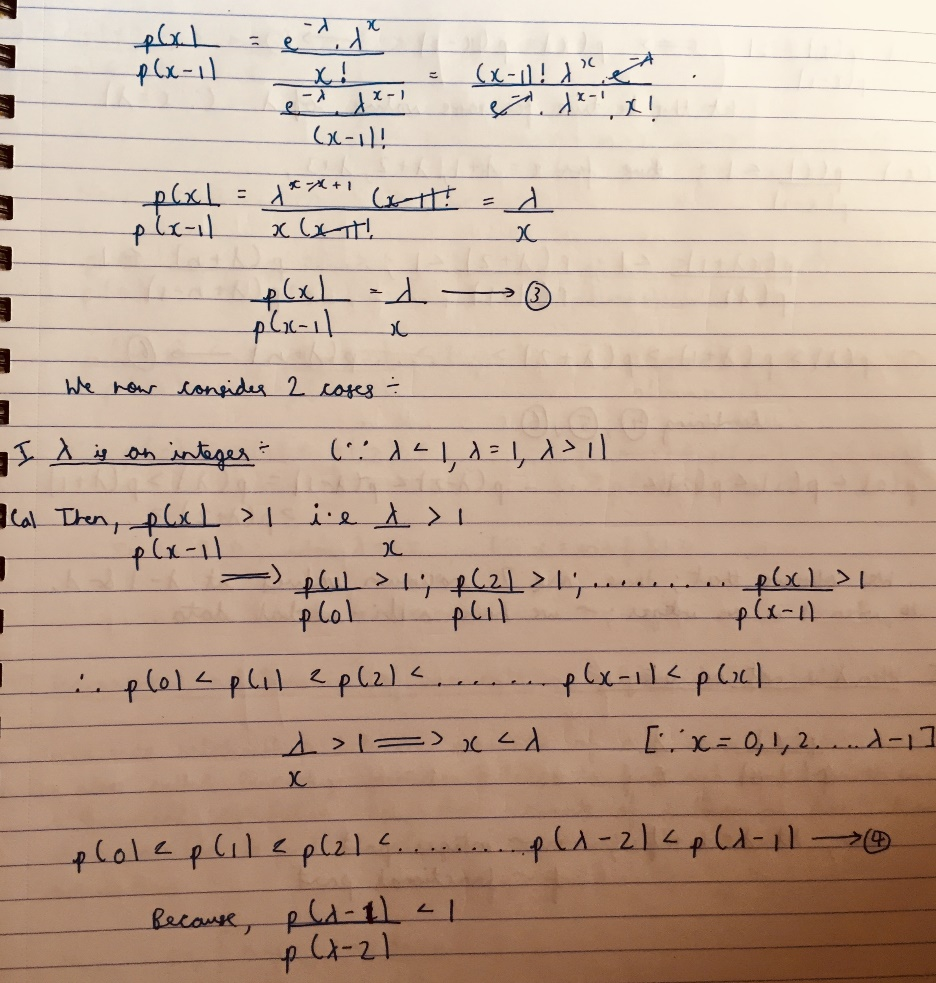 p(x)/p(x-1) = (e^-λ . λ^x / x!) / (e^-λ . λ^x-1 / (x-1)!) = (x-1)! λ^x . e^-λ / e^-λ . λ^x-1 . x! .
p(x)/p(x-1) = λ^x-x+1 (x-1)! / x (x-1)! = λ/x
p(x)/p(x-1) = λ/x → ③
We now consider 2 cases ÷
I λ is an integer ÷ (∵ λ < 1, λ = 1, λ > 1)
(a) Then, p(x)/p(x-1) > 1 i.e λ/x > 1
⟹ p(1)/p(0) > 1 ; p(2)/p(1) > 1 ; .......... p(x)/p(x-1) > 1
∴ p(0) < p(1) < p(2) < ........ p(x-1) < p(x)
λ/x > 1 ⟹ x < λ [∵ x = 0, 1, 2 .... λ-1]
p(0) < p(1) < p(2) < .......... p(λ-2) < p(λ-1) → ④
Because, p(λ-1)/p(λ-2) < 1